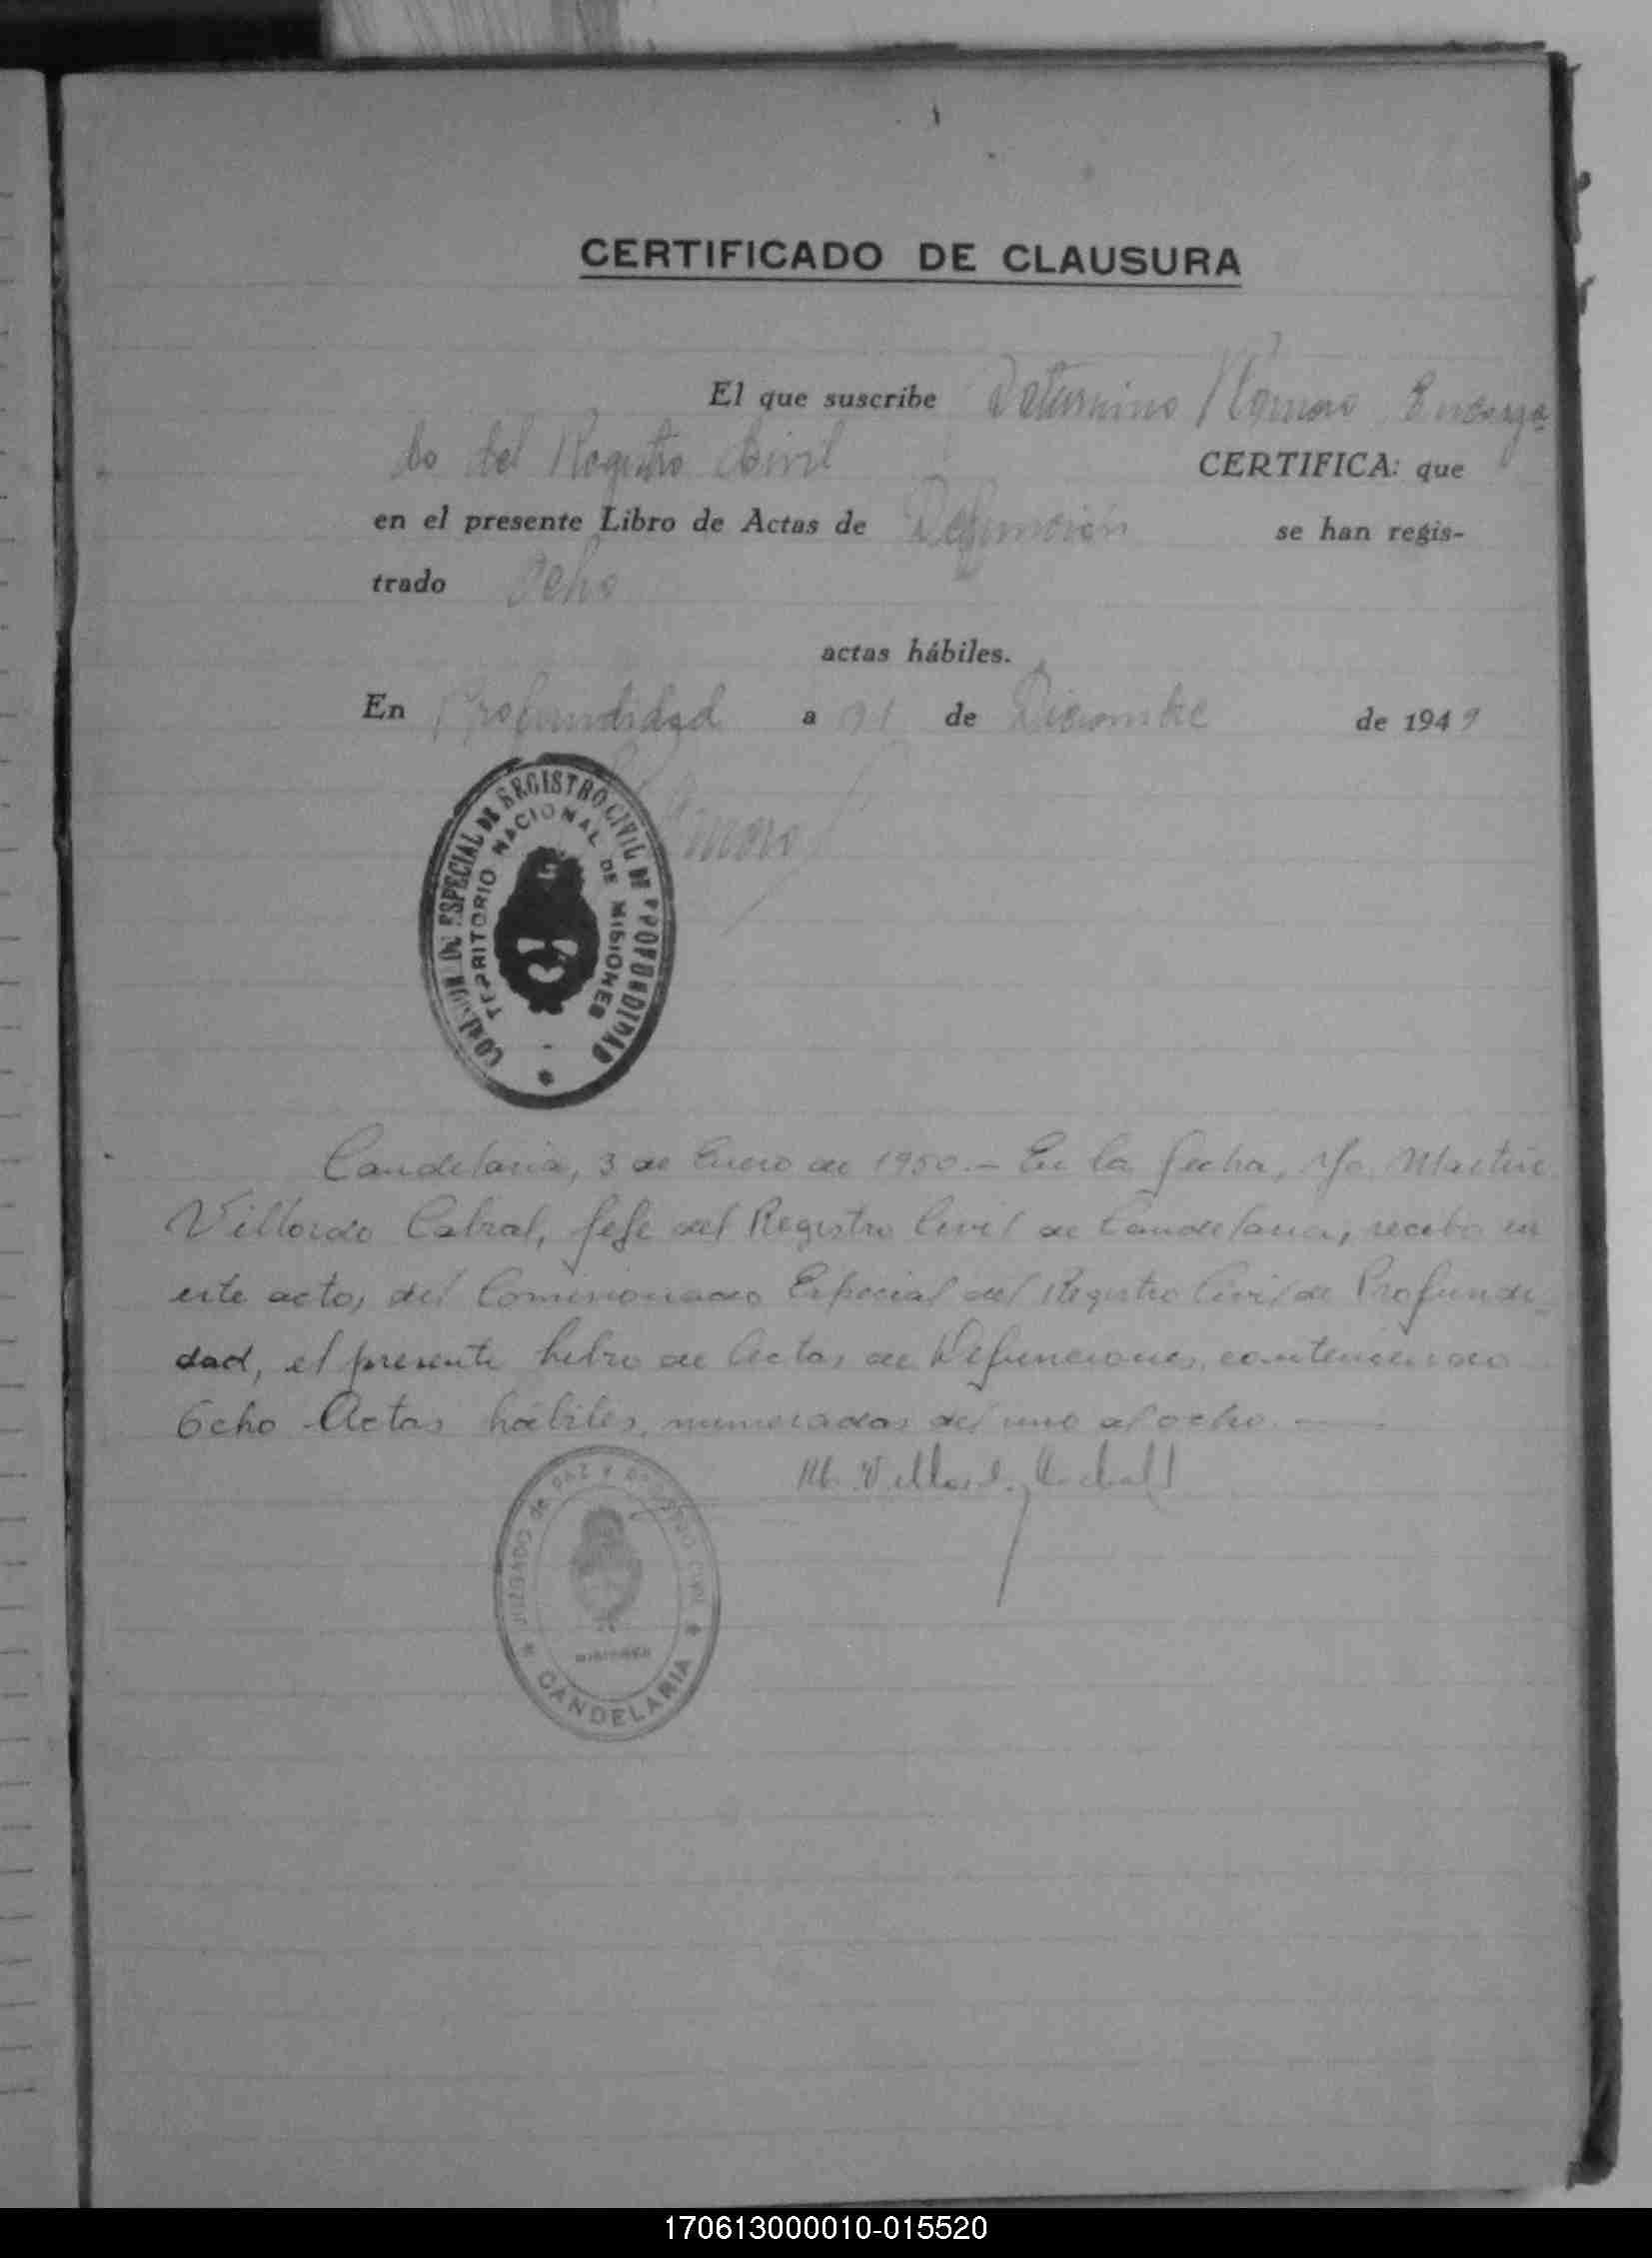 CERTIFICADO DE CLAUSURA
El que suscribe Saturnino Romero Encarga
do del Registro Civil CERTIFICA: que
en el presente Libro de Actas de Defunción se han regis-
trado Ocho
actas hábiles.
En Profundidad a 31 de Diciembre de 1949
COMISION DE ESPECIAL DE REGISTRO CIVIL DE PROFUNDIDAD
TERRITORIO NACIONAL DE MISIONES
Candelaria, 3 de Enero de 1950.- En la fecha, Yo, Martín
Villordo Cabral, Jefe del Registro Civil de Candelaria, recibo en
este acto, del Comisionado Especial del Registro Civil de Profundi-
dad, el presente Libro de Actas de Defunciones, conteniendo
Ocho Actas hábiles, numeradas del uno al ocho.
JUZGADO DE PAZ Y REGISTRO CIVIL
MISIONES
CANDELARIA
170613000010-015520